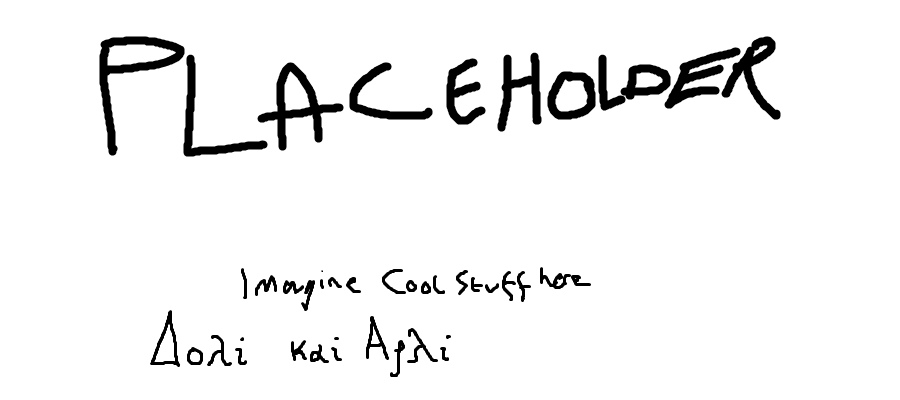 PLACEHOLDER
Imagine Cool Stuff here
Δολi και Αρλi